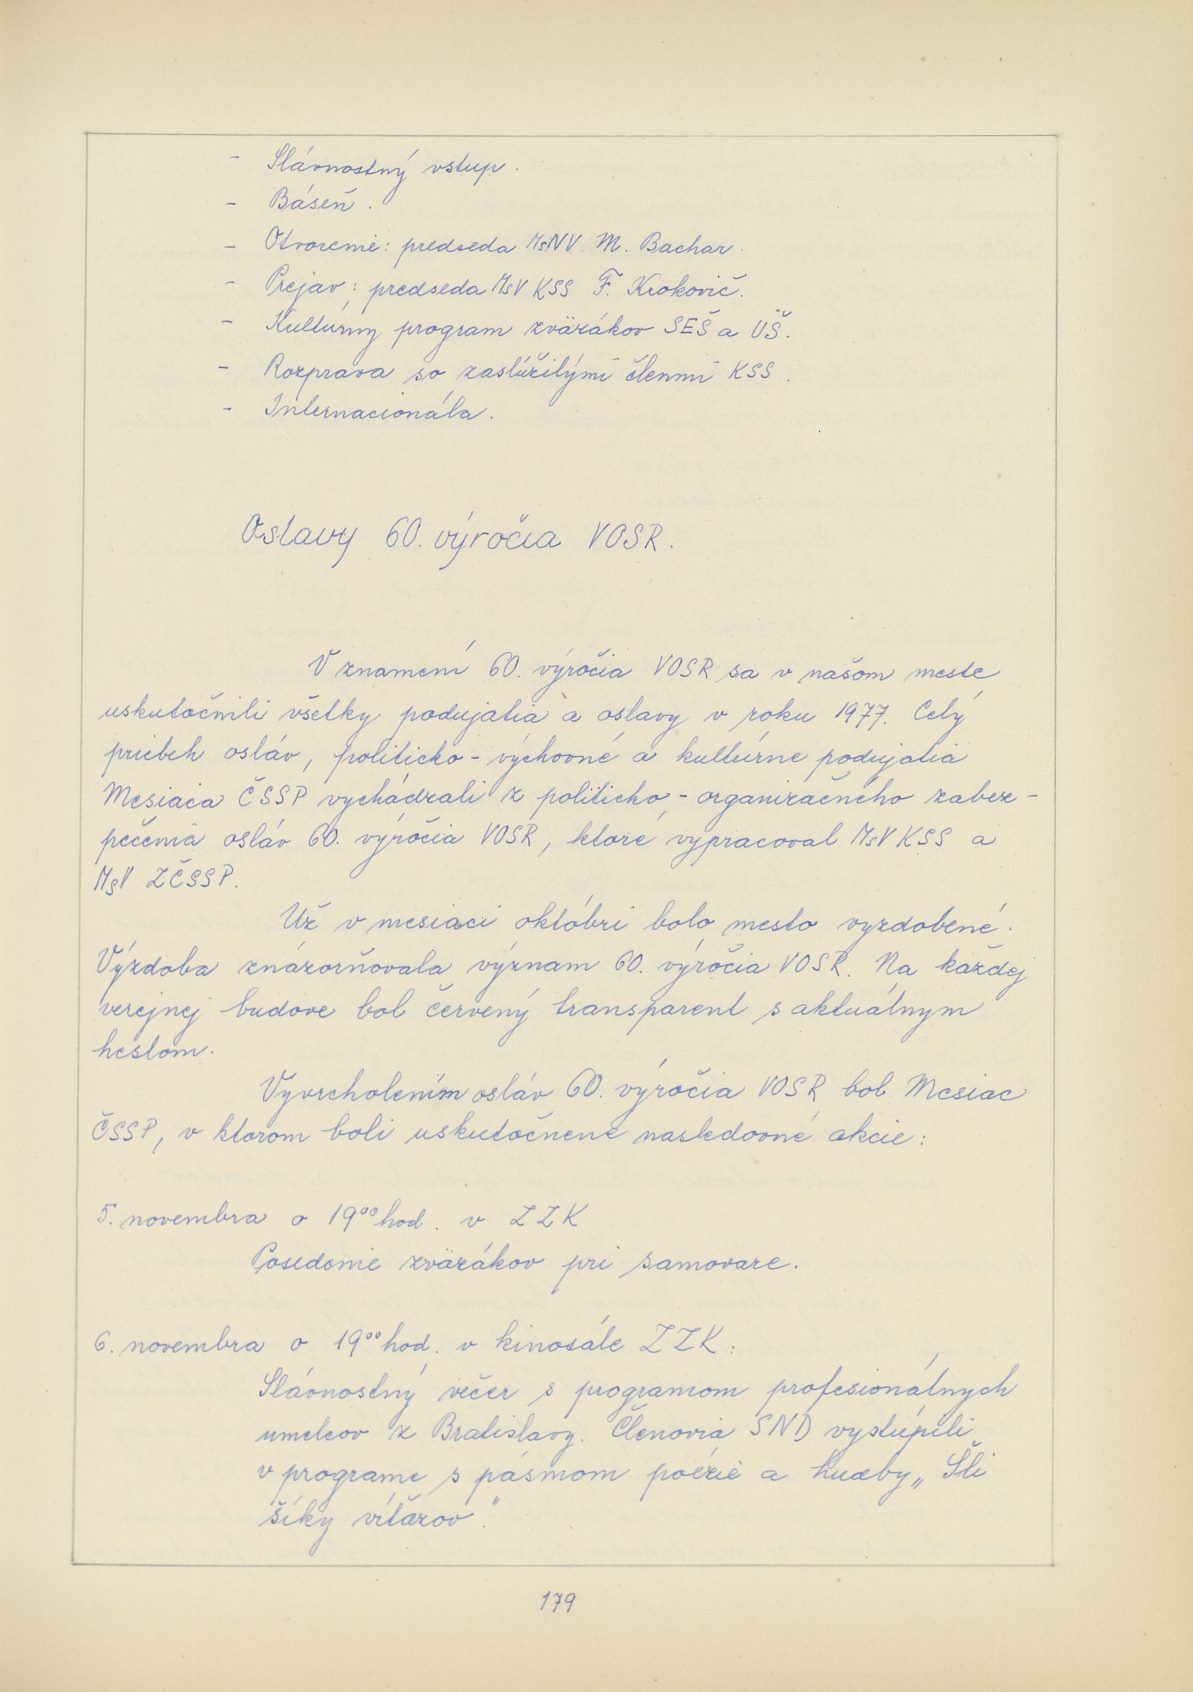 - Slávnostný vstup.
- Báseň.
- Otvorenie: predseda MsNV M. Bachar.
- Prejav: predseda MsV KSS F. Krokovič.
- Kultúrny program zväzákov SEŠ a UŠ.
- Rozprava so zaslúžilými členmi KSS.
- Internacionála.
Oslavy 60. výročia VOSR.
V znamení 60. výročia VOSR sa v našom meste
uskutočnili všetky podujatia a oslavy v roku 1977. Celý
priebeh osláv, politicko-výchovné a kultúrne podujatia
Mesiaca ČSSP vychádzali z politicko-organizačného zabez-
pečenia osláv 60. výročia VOSR, ktoré vypracoval MsV KSS a
MsV ZČSSP.
Už v mesiaci októbri bolo mesto vyzdobené.
Výzdoba znázorňovala význam 60. výročia VOSR. Na každej
verejnej budove bol červený transparent s aktuálnym
heslom.
Vyvrcholením osláv 60. výročia VOSR bol Mesiac
ČSSP, v ktorom boli uskutočnené nasledovné akcie:
5. novembra o 19⁰⁰ hod. v ZZK
Posedenie zväzákov pri samovare.
6. novembra o 19⁰⁰ hod. v kinosále ZZK:
Slávnostný večer s programom profesionálnych
umelcov z Bratislavy. Členovia SND vystúpili
v programe s pásmom poézie a hudby „Šli
šíky víťazov."
179